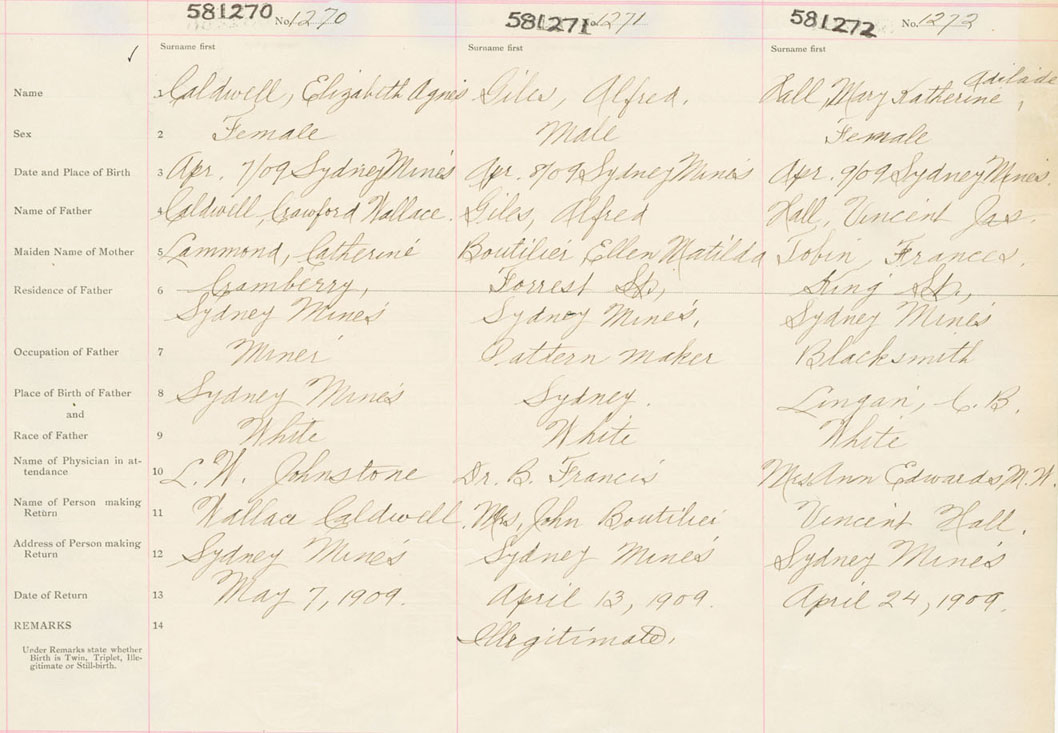 581270 No. 1270 581271 No. 1271 581272 No. 1272
Surname first Surname first Surname first
Adilaide
Name 1 Caldwell, Elizabeth Agnes Giles, Alfred. Hall, Mary Katherine,
Sex 2 Female Male Female
Date and Place of Birth 3 Apr. 7/09 Sydney Mines Apr. 8/09 Sydney Mines Apr. 9/09 Sydney Mines.
Name of Father 4 Caldwell, Crawford Wallace. Giles, Alfred Hall, Vincent Jas.
Maiden Name of Mother 5 Lammond, Catherine Boutilier Ellen Matilda Tobin, Frances.
Residence of Father 6 Cramberry, Forrest St., King St.,
Sydney Mines Sydney Mines, Sydney Mines
Occupation of Father 7 Miner Pattern maker Blacksmith
Place of Birth of Father 8 Sydney Mines Sydney. Lingan, C.B.
and
Race of Father 9 White White White
Name of Physician in at-
tendance 10 L. W. Johnstone Dr. B. Francis Mrs Ann Edwards, M.W.
Name of Person making
Return 11 Wallace Caldwell. Mrs, John Boutilier Vincent Hall.
Address of Person making
Return 12 Sydney Mines Sydney Mines Sydney Mines
Date of Return 13 May 7, 1909. April 13, 1909. April 24, 1909.
REMARKS 14 Illegitimate.
Under Remarks state whether
Birth is Twin, Triplet, Ille-
gitimate or Still-birth.